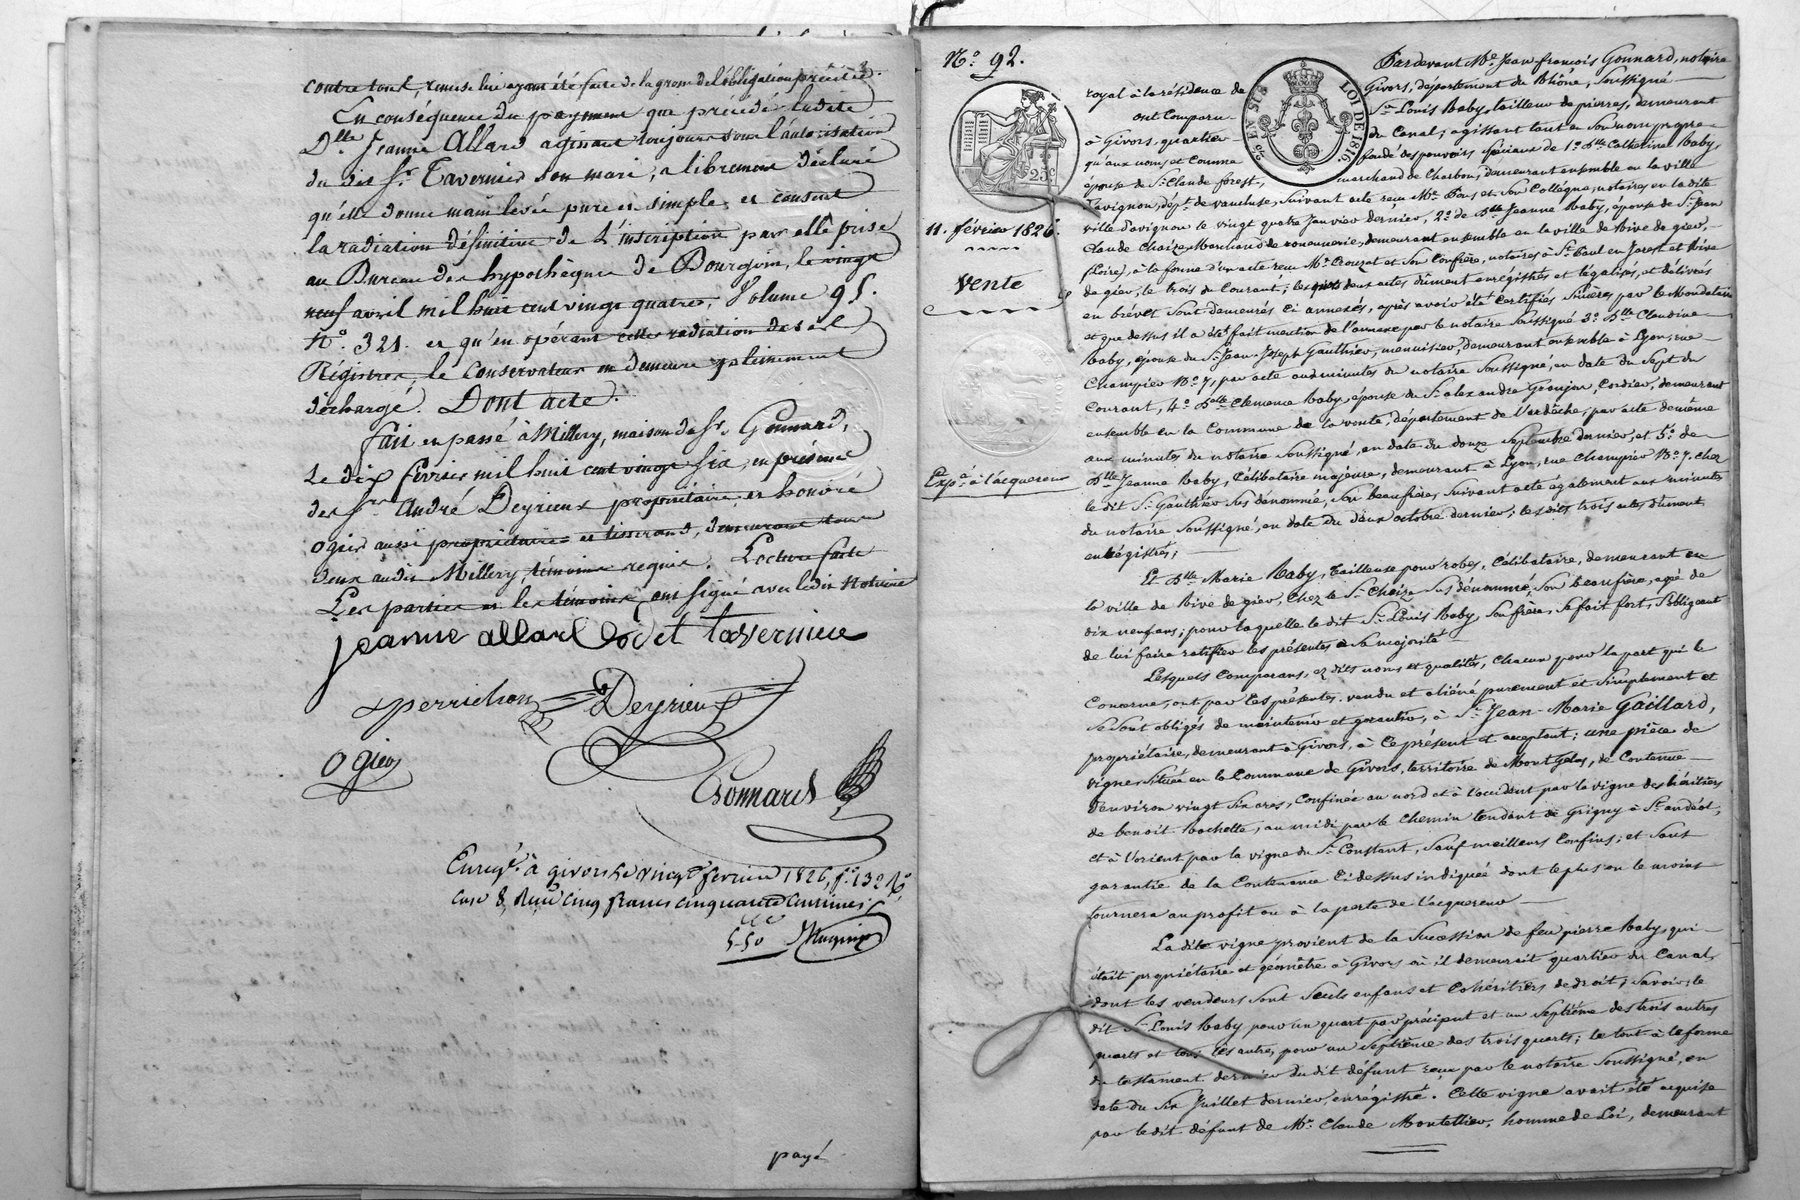 contre tout, remise lui ayant été faite de la grosse de l'obligation précitée.
En conséquence du payement que précède ladite
D.lle Jeanne Allard agissant toujours sous l'autorisation
du dit S.r Tavernier son mari, a librement déclaré
qu'elle donne main levée pure et simple, et consent
la radiation définitive de l'inscription par elle prise
au Bureau des hypothèques de Bourgoin, le vingt
neuf avril mil huit cent vingt quatre, Volume 95.
N.o 321. et qu'en opérant cette radiation de ses
Régistres, le conservateur en demeure pleinement
déchargé. Dont acte.
fait et passé à Millery, maison du S.r Gonnard,
Le dix février mil huit cent vingt six, en présence
des S.rs André Deyrieux propriétaire et honoré
Ogier aussi propriétaire et tisserand, demeurant tous
deux audit Millery, témoins requis. Lecture faite
Les parties et les témoins ont signé avec ledit Notaire
jeanne allard tavernier
perrichon Deyrieux
Ogier
Gonnard
Enreg.é à givors le vingt fevrier 1826, f.o 132 R.o
case 8, Reçu cinq francs cinquante centimes
5-50
payé
N.o 92.
EN SUS
LOI DE 1816.
25c
11. février 1826.
Vente
Exp.on à l'acquereur
Pardevant M.e Jean françois Gonnard, notaire
royal à la résidence de Givors, département du Rhône, Soussigné
ont Comparu S.r Louis Raby, tailleur de pierres, demeurant
à Givors, quartier du Canal; agissant tant en son nom propre
qu'aux noms et Comme fondé des pouvoirs spéciaux de 1.o D.lle Catherine Raby,
épouse de S.r Claude forest, marchand de Charbon, demeurant ensemble en la ville
d'avignon, dép.t de vaucluse, suivant acte reçu M.e Pons et Son Collégue, notaires en la dite
ville d'avignon le vingt quatre Janvier dernier, 2.o de D.lle Jeanne Raby, épouse de S.r Jean
Claude Chaize Marchand de rouennerie, demeurant ensemble en la ville de Rive de gier,
(Loire), à la forme d'un acte reçu M.e Crouzat et Son Confrère, notaires à S.t Paul en Jarest et Rive
de gier, le trois du Courant; lesquels deux actes dûment enregistrés et légalisés, et délivrés
en brévet sont demeurés ci annexés, après avoir été certifiés sincères par le Mandataire
et que dessus il a été fait mention de l'annexe par le notaire Soussigné 3.o D.lle Claudine
Raby, épouse du S.r Jean Joseph Gauthier, menuisier, demeurant ensemble à Lyon, rue
Champier N.o 7, par acte aux minutes du notaire Soussigné, en date du Sept du
Courant, 4.o D.lle Clemence Raby, épouse du S.r alexandre Gronjon, Cordier, demeurant
ensemble en la Commune de la voute, département de l'ardèche, par acte de même
aux minutes du notaire Soussigné, en date du douze septembre dernier, et 5.o de
D.lle Jeanne Raby, Célibataire majeure, demeurant à Lyon, rue Champier N.o 7. chez
le dit S.r Gauthier sus dénommé, Son beaufrère, suivant acte également aux minutes
du notaire Soussigné, en date du deux octobre dernier; les dits trois actes dûment
enregistrés;
Et D.lle Marie Raby, Tailleuse pour robes, Célibataire, demeurant en
la ville de Rive de gier, chez le S.r Chaize Sus dénommé, Son beaufrère, agé de
dix neuf ans; pour laquelle le dit S.r Louis Raby Son frère, se fait fort, S'obligeant
de lui faire ratifier les présentes à Sa majorité
Lesquels Comparans, ez dits noms et qualités, chacun pour la part qui le
Concerne, ont par les présentes, vendu et aliéné purement et simplement et
se sont obligés de maintenir et garantir, à S.r Jean-Marie Gaillard,
propriétaire, demeurant à Givors, à Ce présent et acceptant; une pièce de
vigne, située en la Commune de Givors, territoire de Montgelas, de Contenue
d'environ vingt six ares, Confinée au nord et à l'occident par la vigne des héritiers
de benoit Rochette, au midi par le Chemin tendant de Grigny à S.t andéol,
et à l'orient par la vigne du S.r Constant, Sauf meilleurs Confins; et Sans
garantie de la Contenance Ci dessus indiquée dont le plus ou le moins
tournera au profit ou à la perte de l'acquereur
La dite vigne provient de la Succession de feu pierre Raby, qui
était propriétaire et géomètre à Givors où il demeurait quartier du Canal,
dont les vendeurs sont Seuls enfans et Cohéritiers de droit, Savoir; le
dit S.r Louis Raby pour un quart par préciput et un Septième des trois autres
quarts et tous les autres, pour un Septième des trois quarts; le tout à la forme
du testament dernier du dit défunt reçu par le notoire Soussigné, en
date du Six Juillet dernier, enrégistré. Cette vigne avait été acquise
par le dit défunt de M.r Claude Montellier, homme de Loi, demeurant